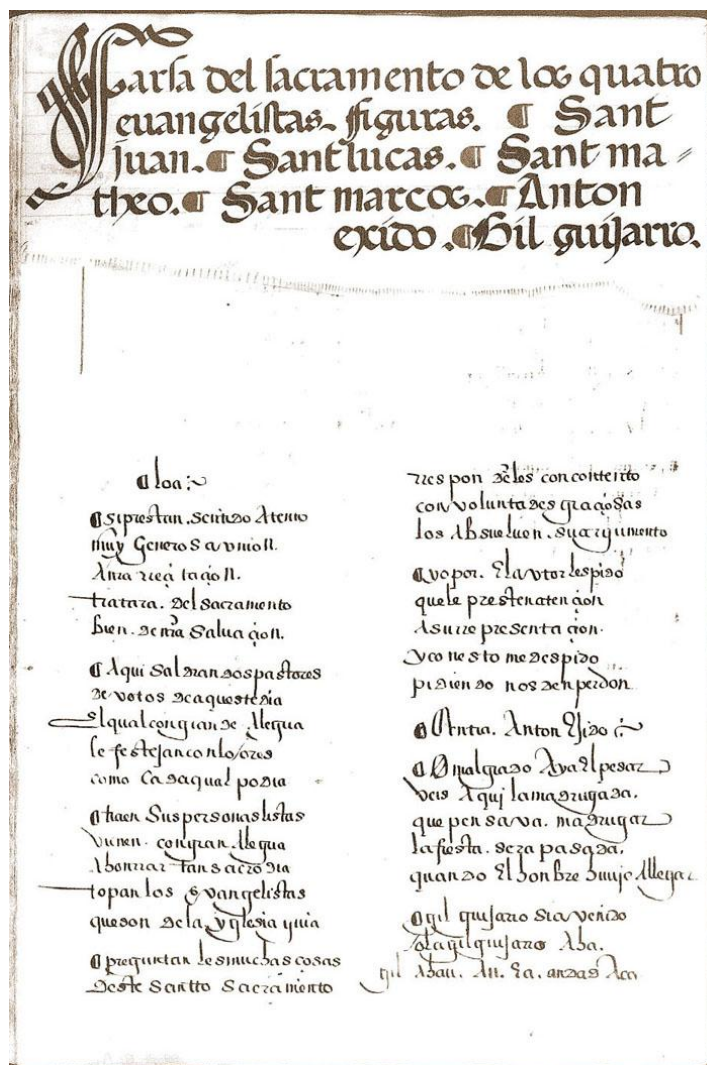 Farsa del sacramento de los quatro
euangelistas. figuras. ¶ Sant
juan. ¶ Sant lucas. ¶ Sant ma=
theo. ¶ Sant marcos. ¶ Anton
exido. ¶ Gil guijarro.
¶ loa
¶ si prestan. sentido Atento
muy Generosa vnion.
tratara. del sacramento
bien. de nra saluaçion.
¶ Aqui saldran dos pastores
devotos de aqueste dia
El qual con grande Alegria
le festejan con loores
como cada qual podia
¶ traen sus personas listas
vienen. con gran Alegria
A honrrar tan sacro dia
topan los Evangelistas
que son de la yglesia guia
¶ preguntan les muchas cosas
deste santto sacramento
rresponden les con contento
con voluntades graçiosas
los Absueluen. su argumento
¶ yo por. El Avtor les pido
que le presten atençion
A su rrepresentaçion.
y con esto me despido
pidiendo nos den perdon
¶ Entra. Anton Exido
¶ O mal grado Aya El pesar
veis Aqui la madrugada.
que pensava. madrugar
la fiesta. sera pasada.
quando El honbre Allegar
¶ gil guijarro si a venido
ola gil guijarro Aha.
gil Ahau. An. Ea. andas Aca